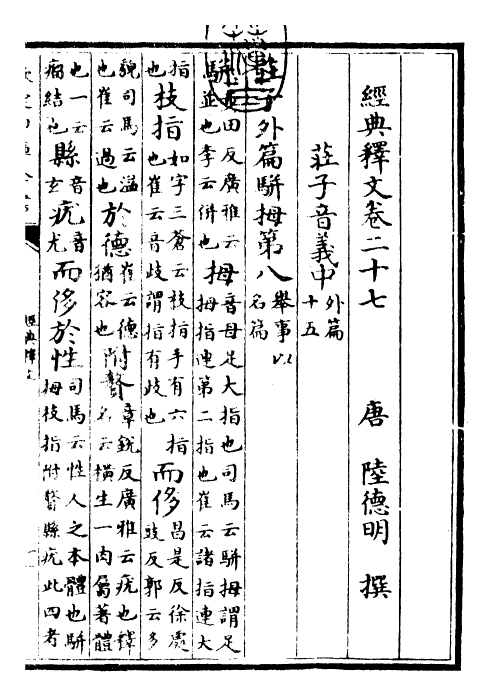 經典釋文卷二十七
唐 陸德明 撰
莊子音義中外篇十五
莊子外篇駢拇第八舉事以名篇
駢步田反廣雅云駢並也李云併也拇音母足大指也司馬云駢拇謂足拇指連第二指也崔云諸指連大
指也枝指如字三蒼云枝指手有六指也崔云音歧謂指有歧也而侈昌是反徐處豉反郭云多
貌司馬云溢也崔云過也於德崔云德猶容也附贅章銳反廣雅云疣也釋名云橫生一肉屬著體
也一云瘤結也縣音玄疣音尤而侈於性司馬云性人之本體也駢拇枝指附贅縣疣此四者
經典釋文